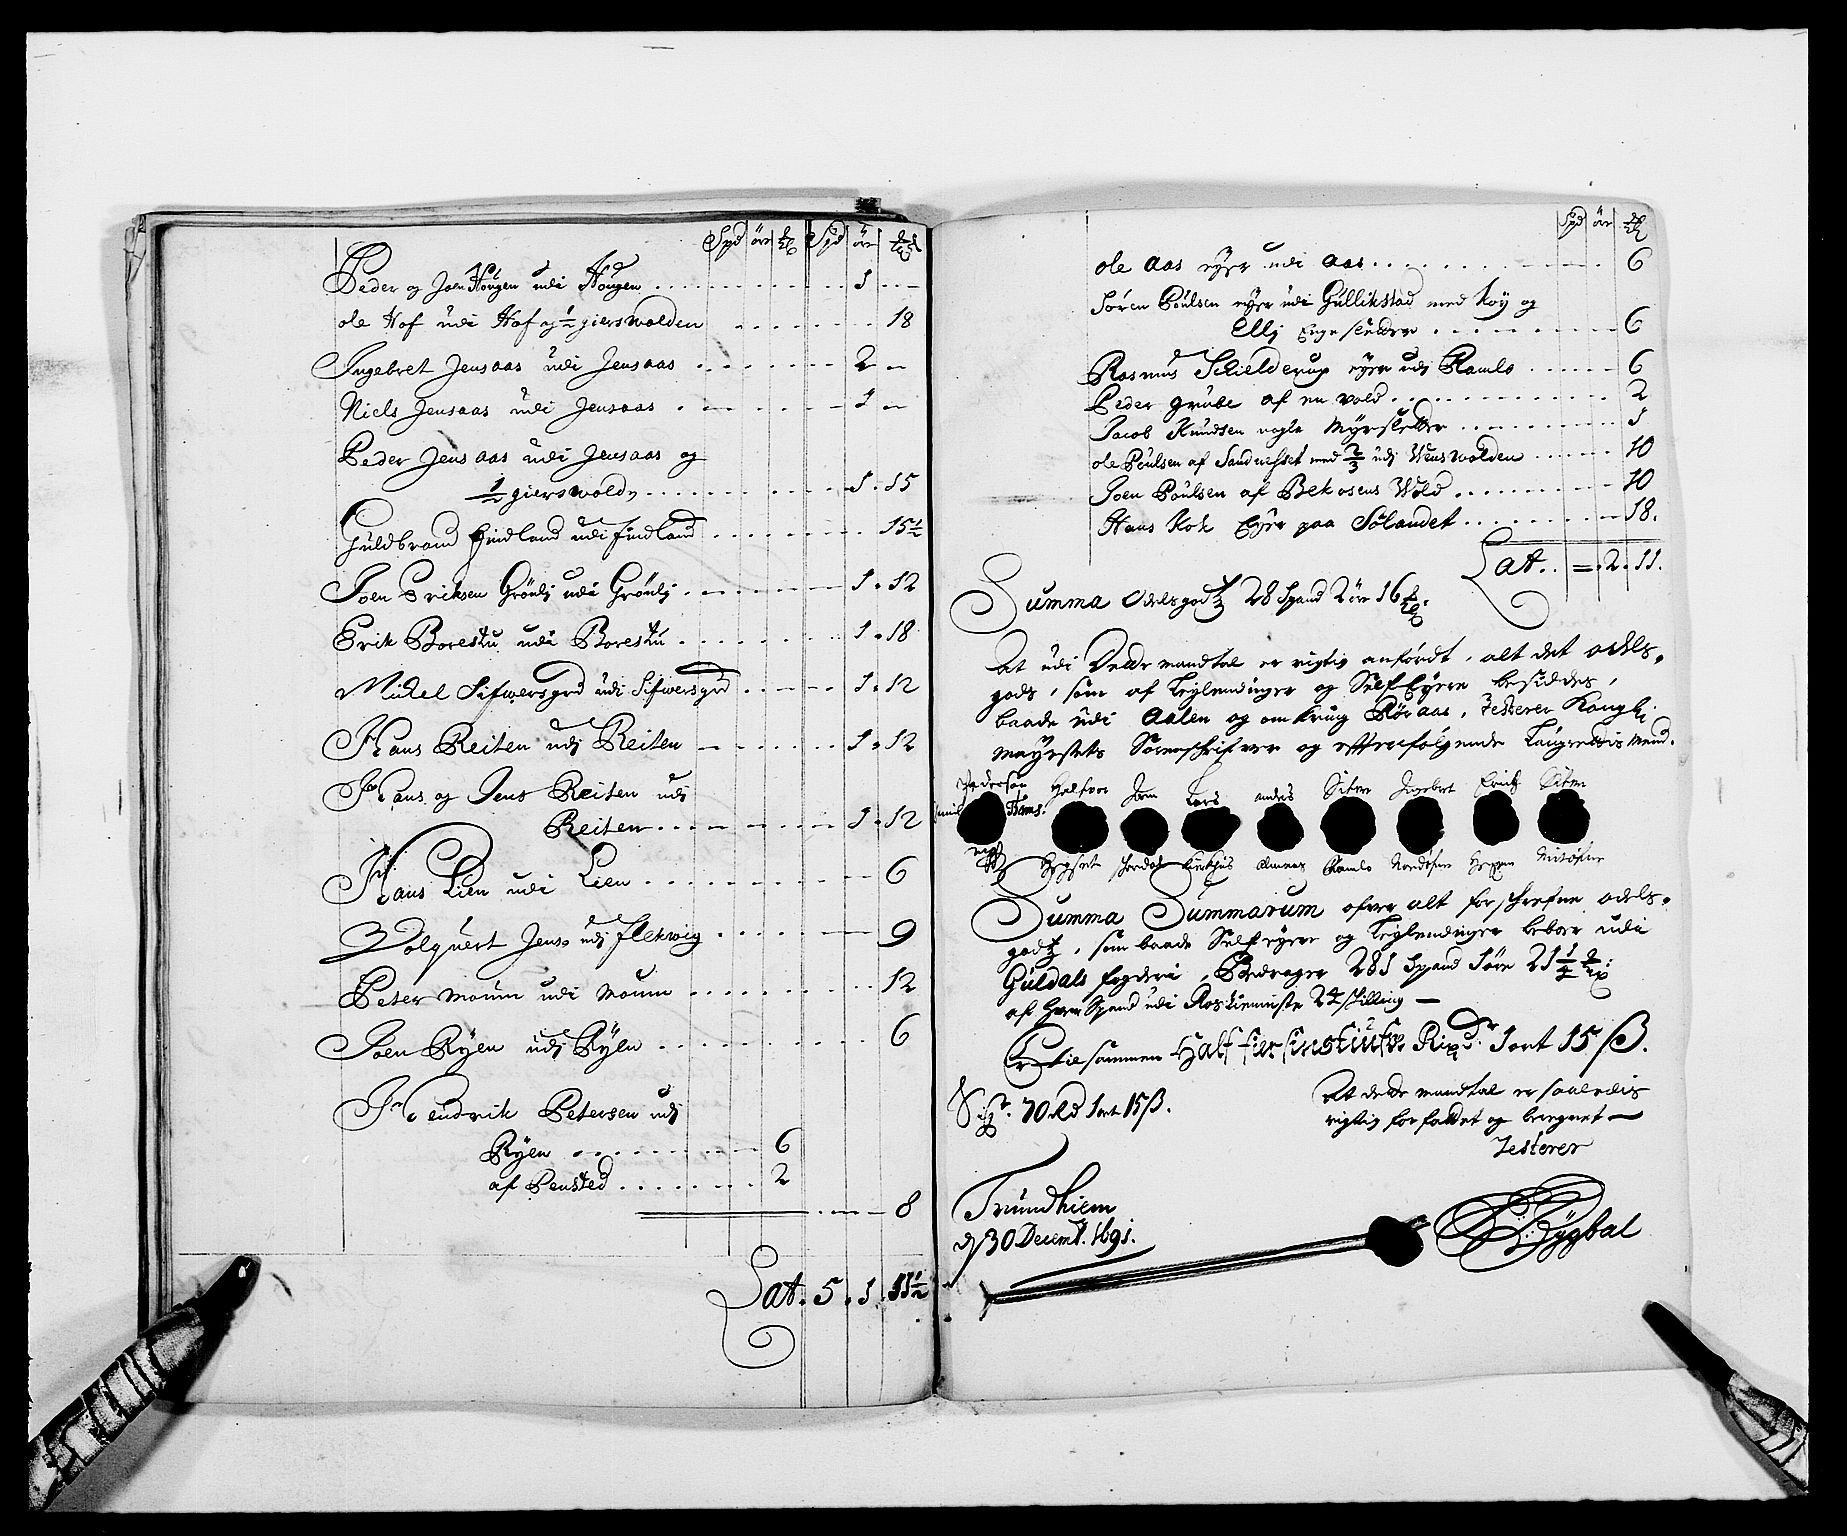 Spd öre Spd öre
Peder og Joen Hougen udi Hougen . . . . . 1 . –
ole Hof udi Hof og 1/2 gierswolden . . . . . 18
Ingebret Jensaas udi Jensaas . . . . . 2 –
Niels Jensaas udi Jensaas . . . . . 1 –
Peder Jensaas udi Jensaas og
1/2 gierswold . . . . . 1 . 15
Guldbrand Findland udi Findland . . . . . 15 1/2
Joen Eriksen Grönlj udi Grönlj . . . . . 1 . 12
Erik Borestu udi Borestu . . . . . 1 . 18
Mickel Sifwersgrd udi Sifwersgrd . . . . . 1 . 12
Hans Reiten udj Reiten . . . . . 1 . 12
Hans og Jens Reiten udj
Reiten . . . . . 1 . 12
Hans Lien udi Lien . . . . . 6
Volquert Jens: udj Flekwig . . . . . 9
Peter Moum udi Moum . . . . . 12
Joen Ryen udj Ryen . . . . . 6
Hendrik Petersen udj
Ryen . . . . . 6
af Pensted . . . . . 2
8
Lat. 5 . 1 . 11 1/2
Spd öre
ole Aas eyer udi Aas . . . . . 6
Sören Poulsen eyer udi Gullikstad med Koy og
Ellj Enge sletter . . . . . 6
Rasmus Schielderup eyer udj Ramlo . . . . . 6
Peder Grube af en vold . . . . . 2
Jacob Knudsen nogle Myrsletter . . . . . 1
ole Poulsen af med 2/3 udj Wenswolden . . . . . 10
Joen Poulsen af Bekosens Wold . . . . . 10
Hans Kok Eyer paa Sölandet . . . . . 18.
Lat. . = . 2 . 11.
Summa Odelsgodtz 28 Spand 2 öre 16
At udi Dette mandtal er rigtig anfördt, alt det odels-
gods, som af Leylendinger og Self Eyere besiddes,
baade udi Aalen og omkring Röraas, Testerer Kongl:
mayestets Sorenschrifver og efterfölgende Laugrettis Mend.
Pederson Halfvor Joen Lars anders Siver Ingebert Erich Siver
Hans.
Kirkhus Ramlo
Summa Summarum ofver alt forschrefne odels-
godtz, som baade Selfeyere og Leylendinger beboer udi
Guldals fogderi, Bedrager 281 Spand 1 öre 21 1/4
af hver Spand udi Rostienniste 24 skilling –
Er tilsammen Half fierdsindstiufve Rixdr. 1 ort 15 ß.
Sigr. 70 Rd 1 ort 15 ß.
At dette mandtal er saaledis
rigtig forfattet og beregnet –
Testerer
Trundhiem
d 30 Decemb. 1691.
Bygbal